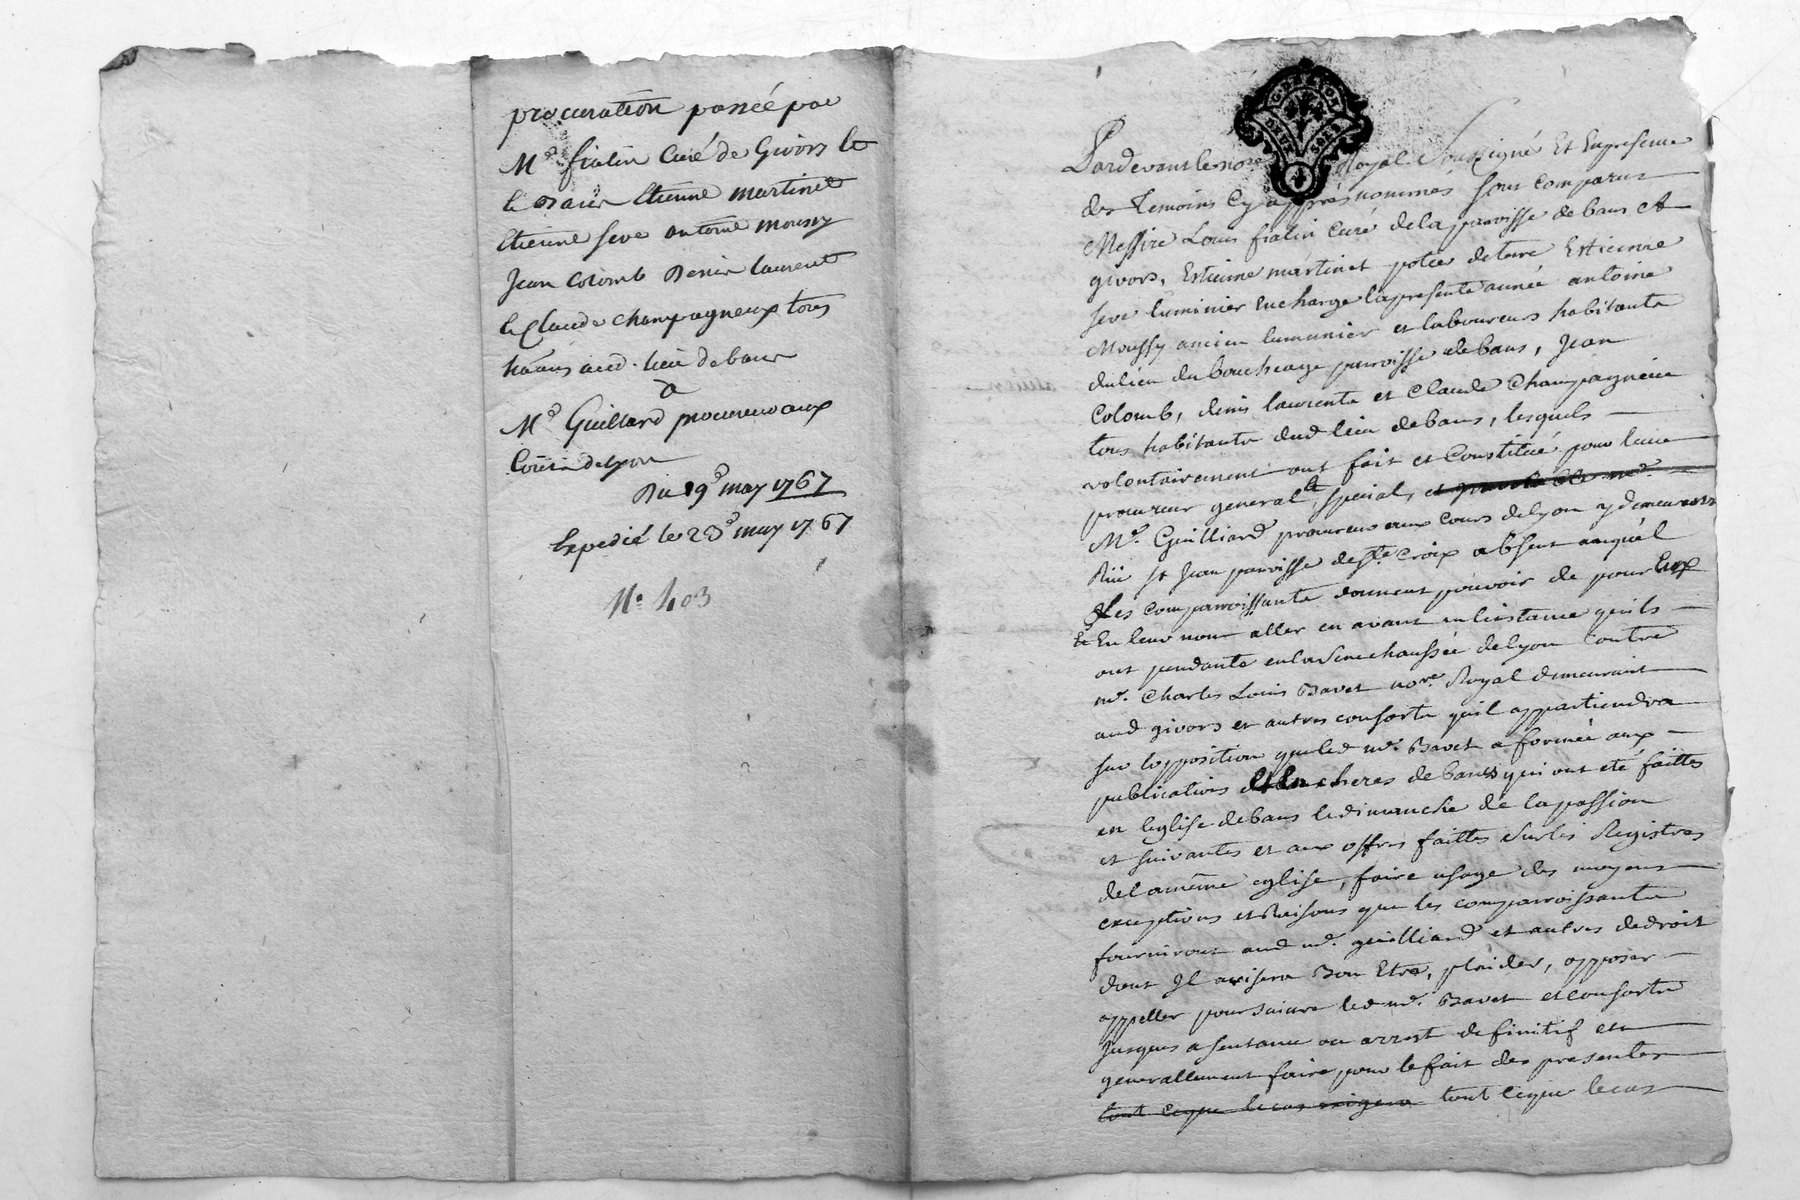 procuration passée par
Mr fialin Curé de Givors et
de Bans Etienne martinet
Etienne Seve antoine moussy
Jean Colomb Denis Laurent
et Claude champagneux tous
hãns aud. lieu de bans
a
Mr Guilliard procureur aux
Cours de lyon
Du 19e may 1767
Expedié le 23e may 1767
N. 403
Pardevant le nore Royal Soussigné Et En presence
des Temoins Cy après nommés sont comparus
Messire Louis fialin Curé de la parroisse de bans et
givors, Estienne martinet potier de terre Estienne
Seve luminier en charge la presente année antoine
Moussy ancien lumunier et laboureurs habitants
du lieu du bouchage parroisse de bans, Jean
Colomb, denis laurents et Claude Champagneux
tous habitants dud lieu de bans, lesquels
volontairement ont fait et Constitué pour leur
procureur general et special, et
Me. Guilliard procureur aux cours de lyon y demeurant
Rüe St Jean parroisse de Ste Croix absent auquel
Les comparroissants donnent pouvoir de pour Eux
Et En leur nom aller en avant en l'instance qu'ils
ont pendante en la Senechaussée de lyon Contre
me. Charles Louis Bavet nore. Royal demeurant
aud givors et autres consorts qu'il appartiendra
sur l'opposition que led me. Bavet a formée aux
publications et Encheres de bancs qui ont eté faittes
en leglise de bans le dimanche de la passion
et suivantes et aux offres faittes sur les Registres
de la même eglise, faire usage des moyens
exceptions et Raisons que les comparroissants
fourniront aud me. guilliard et autres de droit
dont Il avisera Bon Etre, plaider, opposer
appeller poursuivre led me. Bavet et consorts
Jusques a sentance ou arrest definitif et
generallement faire pour le fait des presentes
tout ceque le cas exigera tout ceque le cas